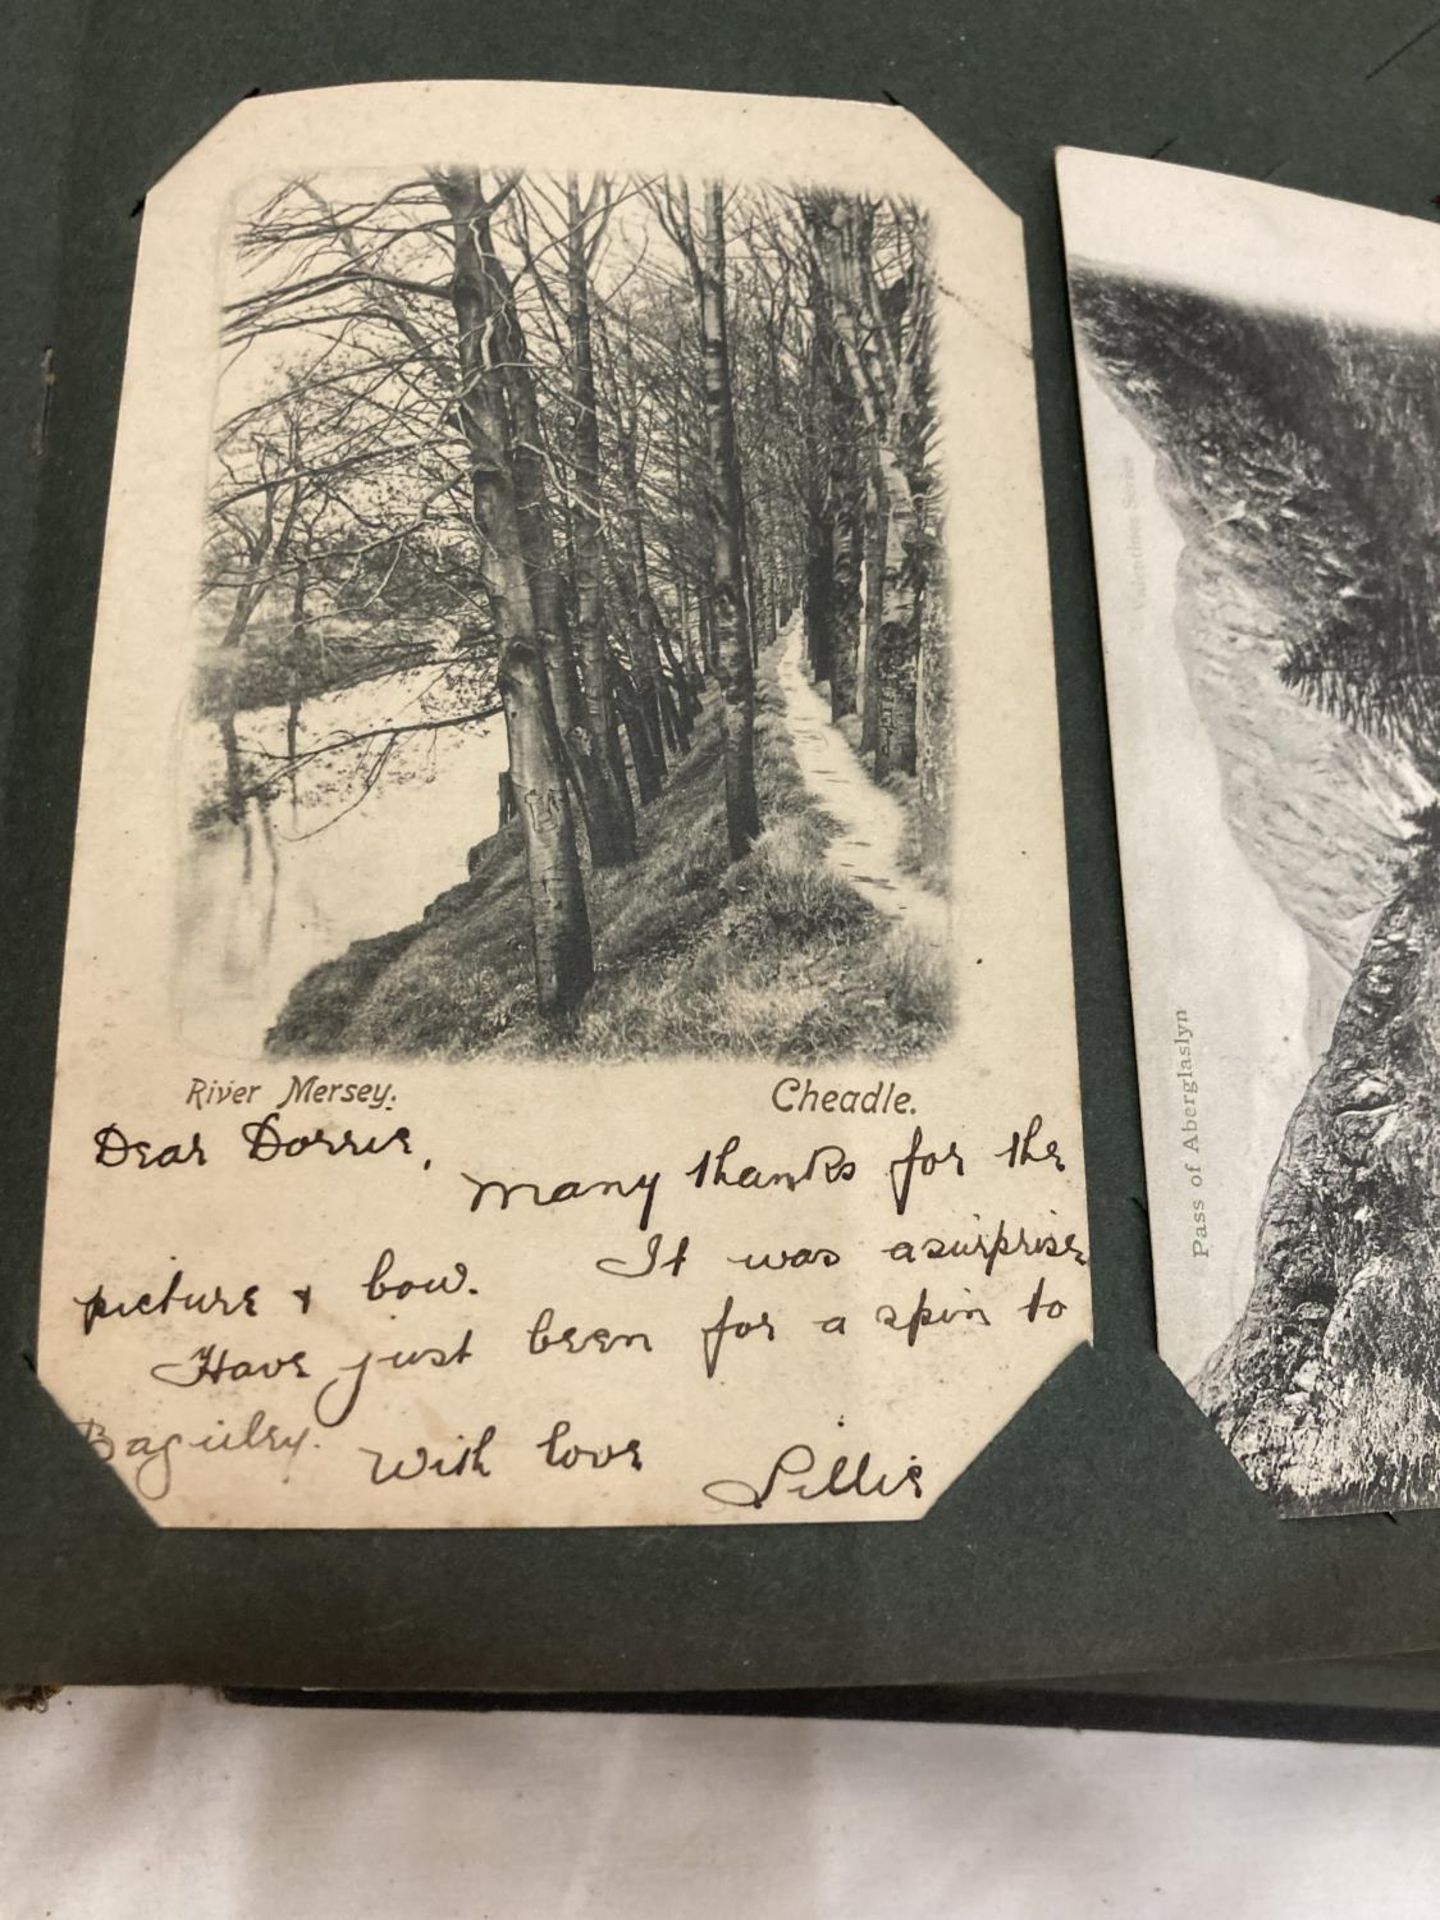 River Mersey. Cheadle.
Dear Dorrie,
Many thanks for the
picture & bow. It was a surprise
Have just been for a spin to
Baguley. With love Lillie
Valentines Series
Pass of Aberglaslyn